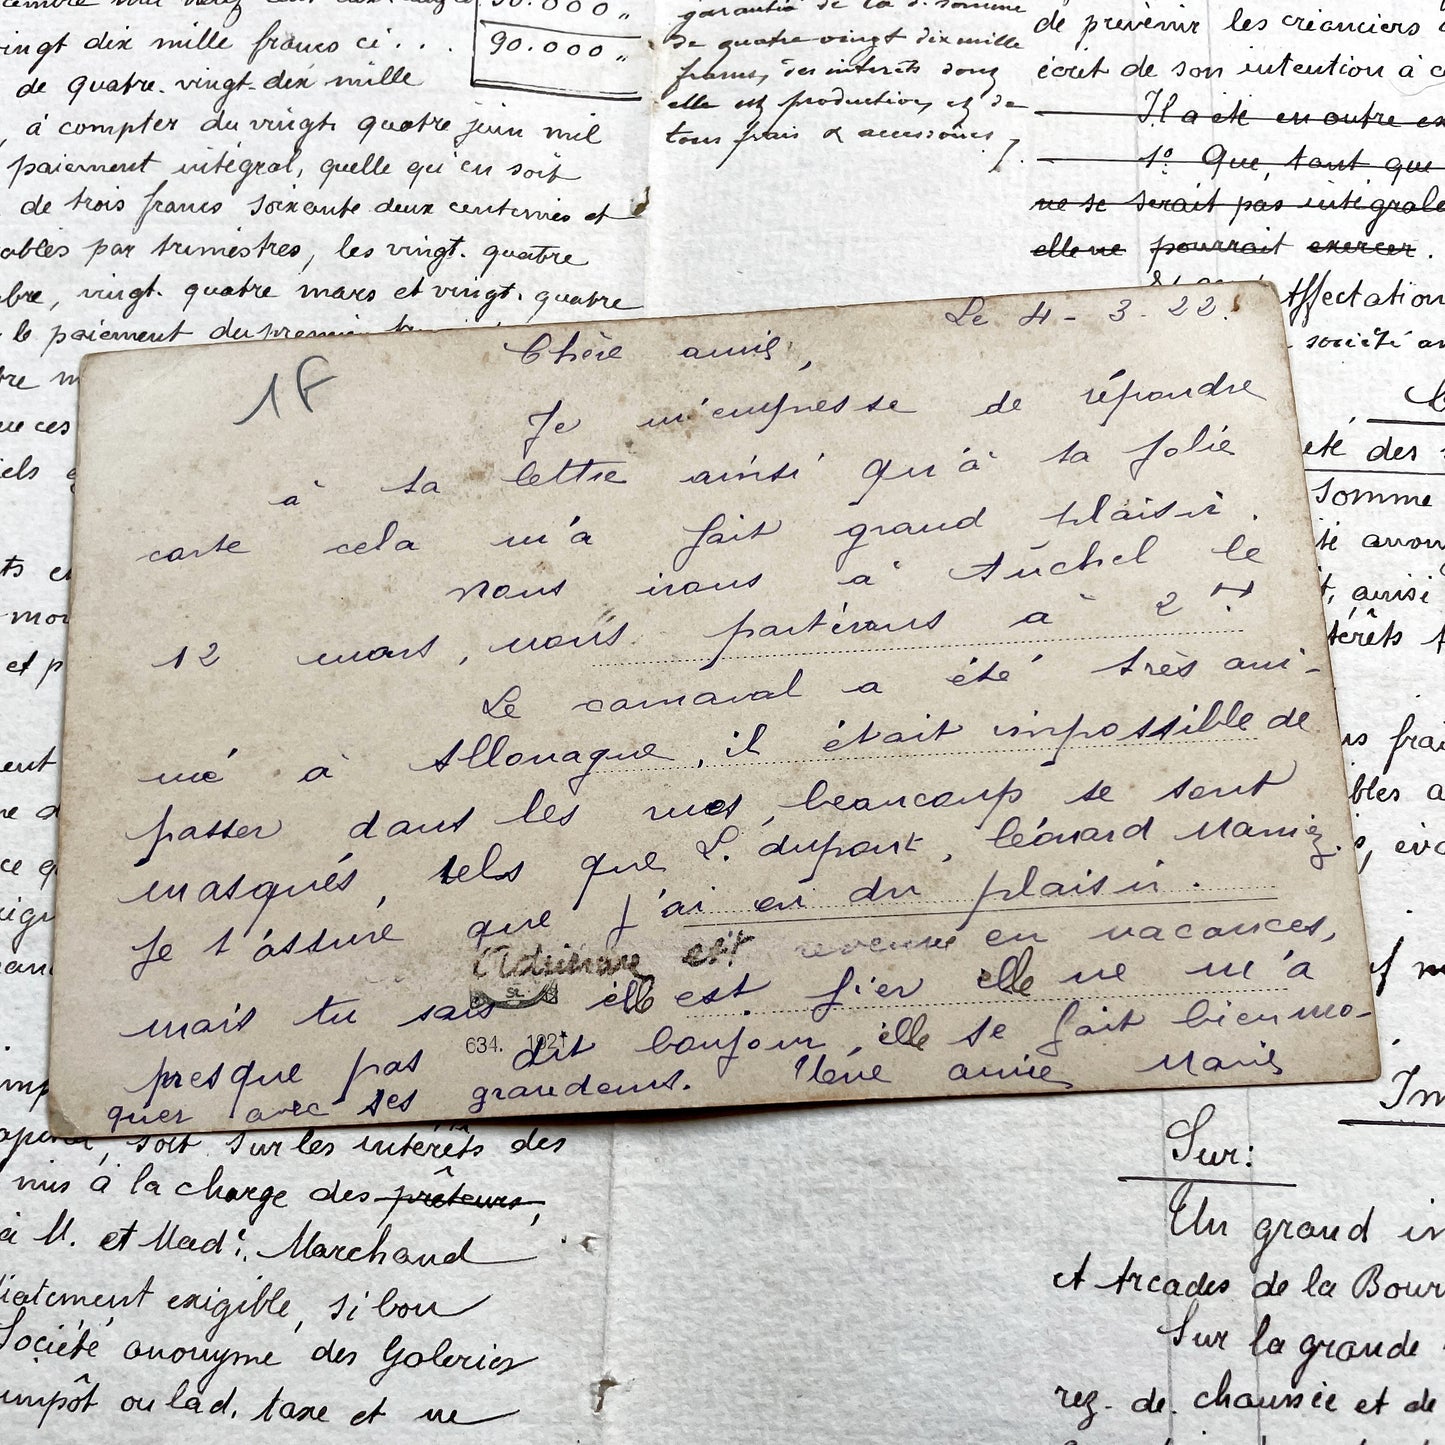 90.000 "
vingt dix mille francs ci . . .
90.000 "
de quatre-vingt-dix mille
, à compter du vingt quatre juin mil
paiement intégral, quelle qu'en soit
de trois francs soixante deux centimes et
ables par trimestres, les vingt-quatre
bre, vingt-quatre mars et vingt-quatre
le paiement du premier
garantie de la d. somme
de quatre-vingt dix mille
francs, des intérêts dont
elle est productive, et de
tous frais & accessoires
de prévenir les créanciers
écrit de son intention à
Il a été en outre
1° Que, tant que
ne se serait pas intégrale
elle ne pourrait exercer.
Affectation
société an
été des
somme
té anony
t, ainsi
térêts
18
Le 4-3-22.
Chère amie,
Je m'empresse de répondre
à ta lettre ainsi qu'à ta jolie
carte cela m'a fait grand plaisir.
Nous irons à Auchel le
12 mars, nous partirons à 2 H.
Le carnaval a été très ani-
mé à Allouagne, il était impossible de
passer dans les rues, beaucoup se sont
masqués, tels que L. dupont, léonard Marniez.
Je t'assure que j'ai eu du plaisir.
Adrienne est revenue en vacances,
mais tu sais elle est fier elle ne m'a
presque pas dit bonjour, elle se fait bien mo-
quer avec ses grandeurs. Une amie Marie
634. 1921
soit sur les intérêts des
mis à la charge des prêteurs,
à M. et Made. Marchand
diatement exigible, si bon
Société anonyme des Galeries
impôt ou lad. taxe et ne
Sur:
Un grand
et Arcades de la Bour
Sur la grande
rez-de-chaussée et de